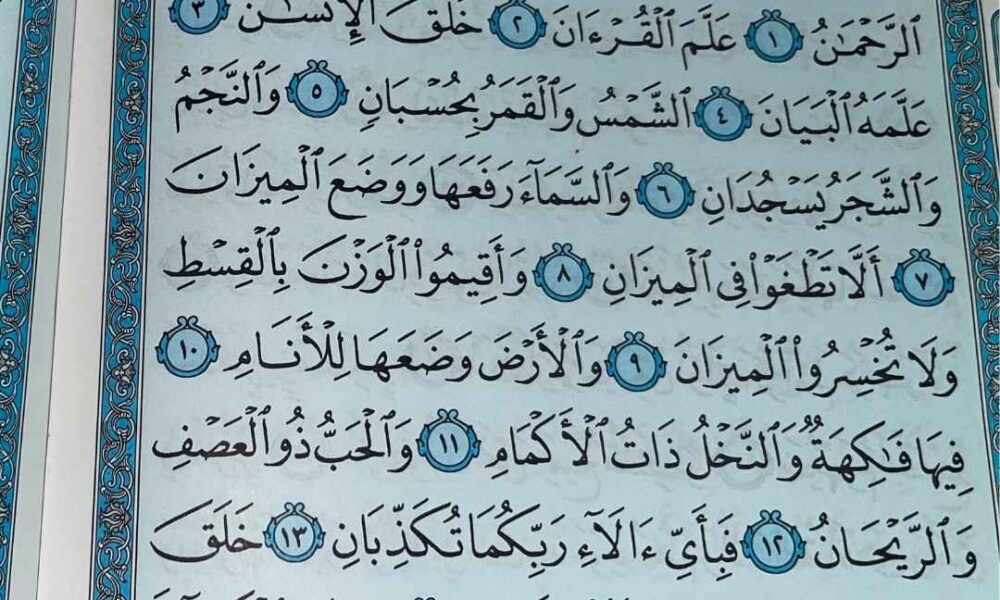 ٱلرَّحۡمَٰنُ ١ عَلَّمَ ٱلۡقُرۡءَانَ ٢ خَلَقَ ٱلۡإِنسَٰنَ ٣
عَلَّمَهُ ٱلۡبَيَانَ ٤ ٱلشَّمۡسُ وَٱلۡقَمَرُ بِحُسۡبَانٖ ٥ وَٱلنَّجۡمُ
وَٱلشَّجَرُ يَسۡجُدَانِ ٦ وَٱلسَّمَآءَ رَفَعَهَا وَوَضَعَ ٱلۡمِيزَانَ
٧ أَلَّا تَطۡغَوۡاْ فِي ٱلۡمِيزَانِ ٨ وَأَقِيمُواْ ٱلۡوَزۡنَ بِٱلۡقِسۡطِ
وَلَا تُخۡسِرُواْ ٱلۡمِيزَانَ ٩ وَٱلۡأَرۡضَ وَضَعَهَا لِلۡأَنَامِ ١٠
فِيهَا فَٰكِهَةٞ وَٱلنَّخۡلُ ذَاتُ ٱلۡأَكۡمَامِ ١١ وَٱلۡحَبُّ ذُو ٱلۡعَصۡفِ
وَٱلرَّيۡحَانُ ١٢ فَبِأَيِّ ءَالَآءِ رَبِّكُمَا تُكَذِّبَانِ ١٣ خَلَقَ